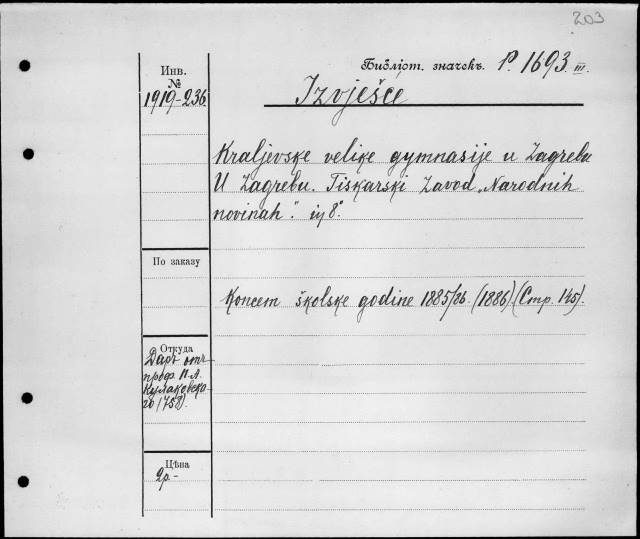 203
Инв.
№
1919-236.
Библіот. значекъ. P. 1693. III.
Izvješće
Kraljevske velike gymnasije u Zagrebu
U Zagrebu. Tiskarski Zavod „Narodnih
novinah". in 8°.
По заказу
Koncem školske godine 1885/86. (1886) (Стр. 145).
Откуда
Даръ отъ
проф. П.А.
Кулаковска-
го (758).
Цѣна
2р.-